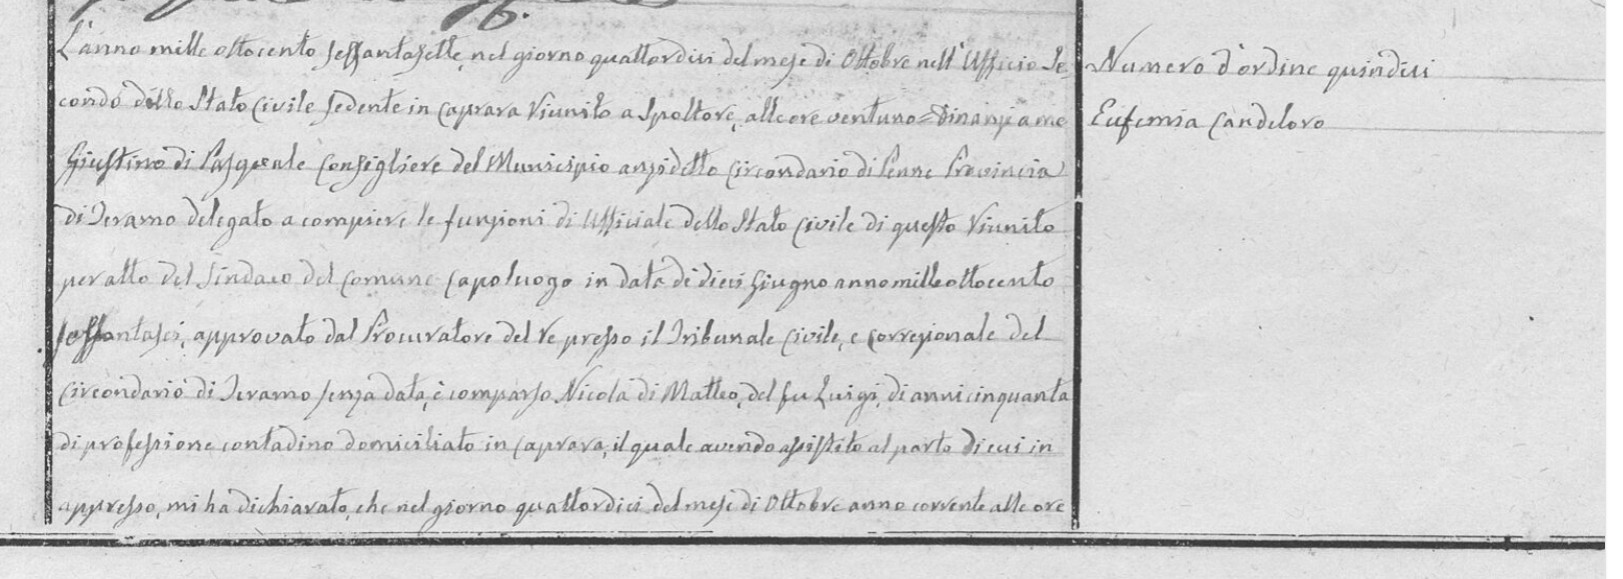 L'anno mille ottocento sessantasette, nel giorno quattordici del mese di Ottobre nell'Ufficio Se
condo dello Stato Civile sedente in Caprara Riunito a Spoltore, alle ore ventuno = dinanzi a me
Giustino di Pasquale Consigliere del Municipio anzidetto Circondario di Penne Provincia
di Teramo delegato a compiere le funzioni di Ufficiale dello Stato Civile di questo Riunito
per atto del Sindaco del Comune Capoluogo in data di dieci Giugno anno mille ottocento
sessantasei, approvato dal Procuratore del Re presso il Tribunale Civile, e Correzionale del
Circondario di Teramo senza data, è comparso Nicola di Matteo, del fu Luigi, di anni cinquanta
di professione contadino domiciliato in Caprara, il quale avendo assistito al parto di cui in
appresso, mi ha dichiarato, che nel giorno quattordici del mese di Ottobre anno corrente alle ore
Numero d'ordine quindici
Eufemia Candeloro